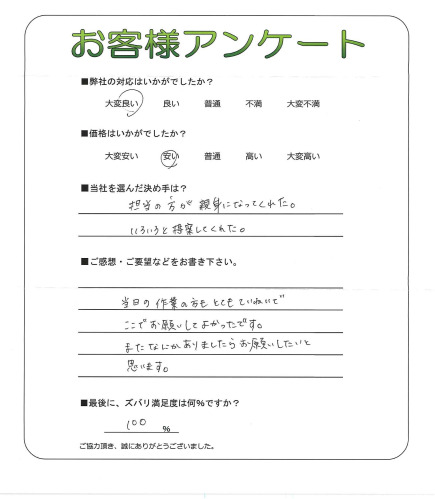 お客様アンケート
■弊社の対応はいかがでしたか?
大変良い 良い 普通 不満 大変不満
■価格はいかがでしたか?
大変安い 安い 普通 高い 大変高い
■当社を選んだ決め手は?
担当の方が親身になってくれた。
いろいろと提案してくれた。
■ご感想・ご要望などをお書き下さい。
当日の作業の方もとてもていねいで
ここでお願いしてよかったです。
またなにかありましたらお願いしたいと
思います。
■最後に、ズバリ満足度は何%ですか?
100 %
ご協力頂き、誠にありがとうございました。